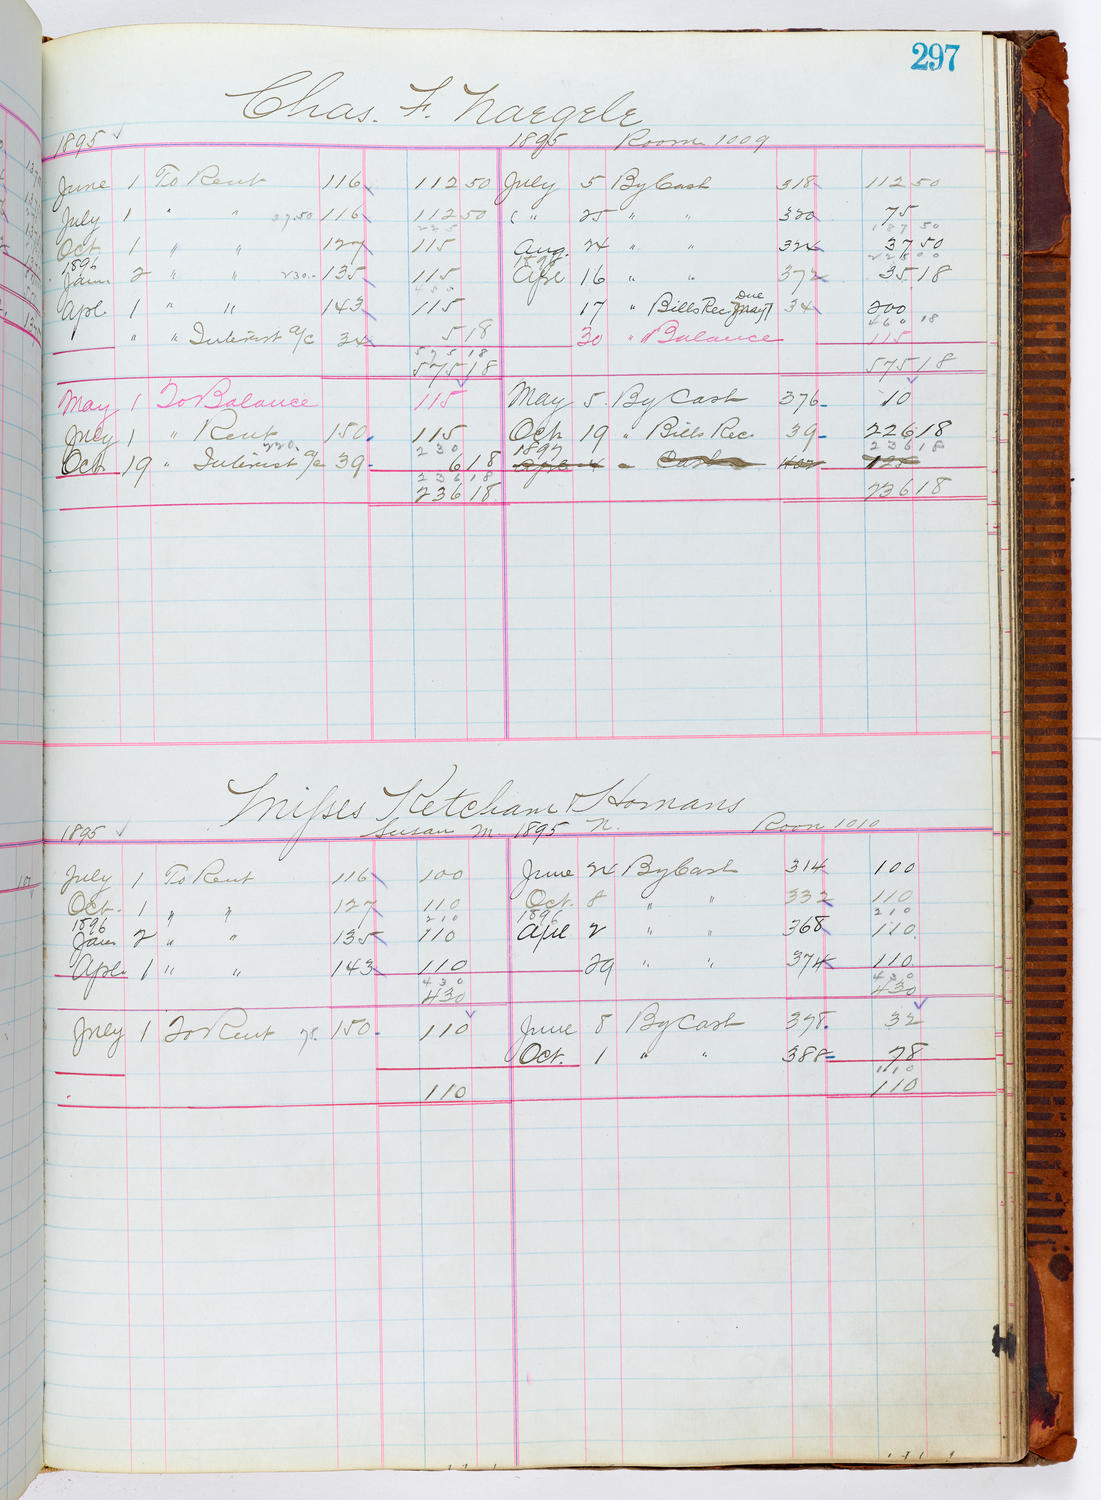 297
Chas. F. Naegele
1895 1895 Room 1009
June 1 To Rent 116 112 50 July 5 By Cash 318 112 50
July 1 " " 27.50 116 112 50 " 25 " " 320 75
225 187 50
Oct. 1 " " 127 115 Aug. 24 " " 324 37 50
1896 1896 225 00
Jan. 2 " " 230.- 135 115 Apl 16 " " 372 35 18
455
Apl. 1 " " 143 115 17 " Bills Rec Due May 17 34 200
460 18
" " Interest a/c 34 5 18 30 " Balance 115
575 18
575 18 575 18
May 1 To Balance 115 May 5 By Cash 376 10
July 1 " Rent 150 115 Oct 19 " Bills Rec. 39 226 18
220. 230 1897 236 18
Oct. 19 " Interest a/c 39 6 18 Apl 4 " Cash 402 125
236 18
236 18 236 18
Misses Ketcham & Homans
1895 Susan M. 1895 N. Room 1010
July 1 To Rent 116 100 June 24 By Cash 314 100
Oct. 1 " " 127 110 Oct. 8 " " 332 110
1896 210 1896 210
Jan 2 " " 135 110 Apl 2 " " 368 110
Apl. 1 " " 143 110 29 " " 374 110
430 430
430 430
July 1 To Rent 78. 150 110 June 8 By Cash 378 32
Oct. 1 " " 388 78
110
110 110